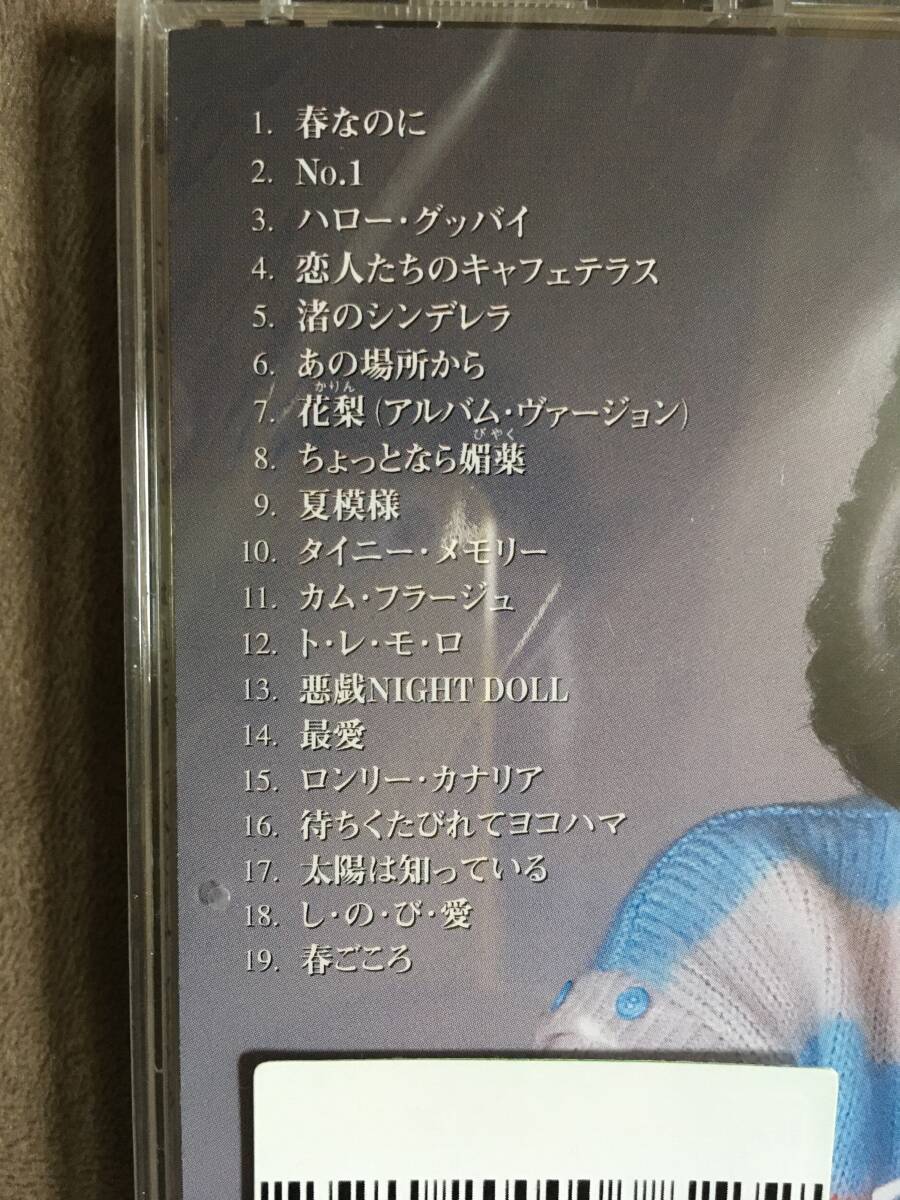 1. 春なのに
2. No.1
3. ハロー・グッバイ
4. 恋人たちのキャフェテラス
5. 渚のシンデレラ
6. あの場所から
かりん
7. 花梨 (アルバム・ヴァージョン)
びやく
8. ちょっとなら媚薬
9. 夏模様
10. タイニー・メモリー
11. カム・フラージュ
12. ト・レ・モ・ロ
13. 悪戯NIGHT DOLL
14. 最愛
15. ロンリー・カナリア
16. 待ちくたびれてヨコハマ
17. 太陽は知っている
18. し・の・び・愛
19. 春ごころ